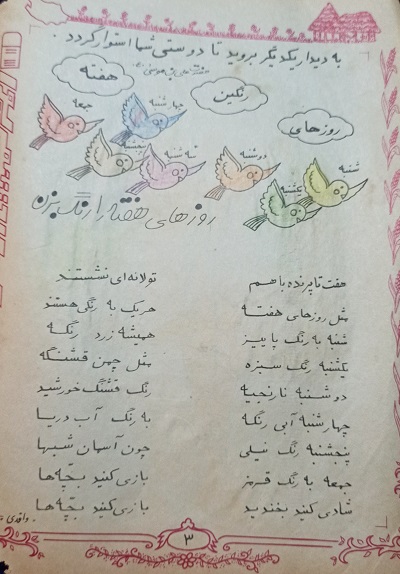 به دیدار یکدیگر بروید تا دوستی شما استوار گردد .
روزهای رنگین هفته
شنبه یکشنبه دوشنبه سه شنبه چهارشنبه جمعه
روزهای هفته را رنگ بزن
هفت تا پرنده با هم تو لانه ای نشستند
مثل روزهای هفته هریک به رنگی هستند
شنبه به رنگ پاییز همیشه زرد رنگه
یکشنبه رنگ سبزه مثل چمن قشنگه
دوشنبه نارنجیه رنگ قشنگ خورشید
چهارشنبه آبی رنگه به رنگ آب دریا
پنجشنبه رنگ نیلی چون آسمان شبها
جمعه به رنگ قرمز بازی کنید بچه ها
شادی کنید بخندید بازی کنید بچه ها
۳